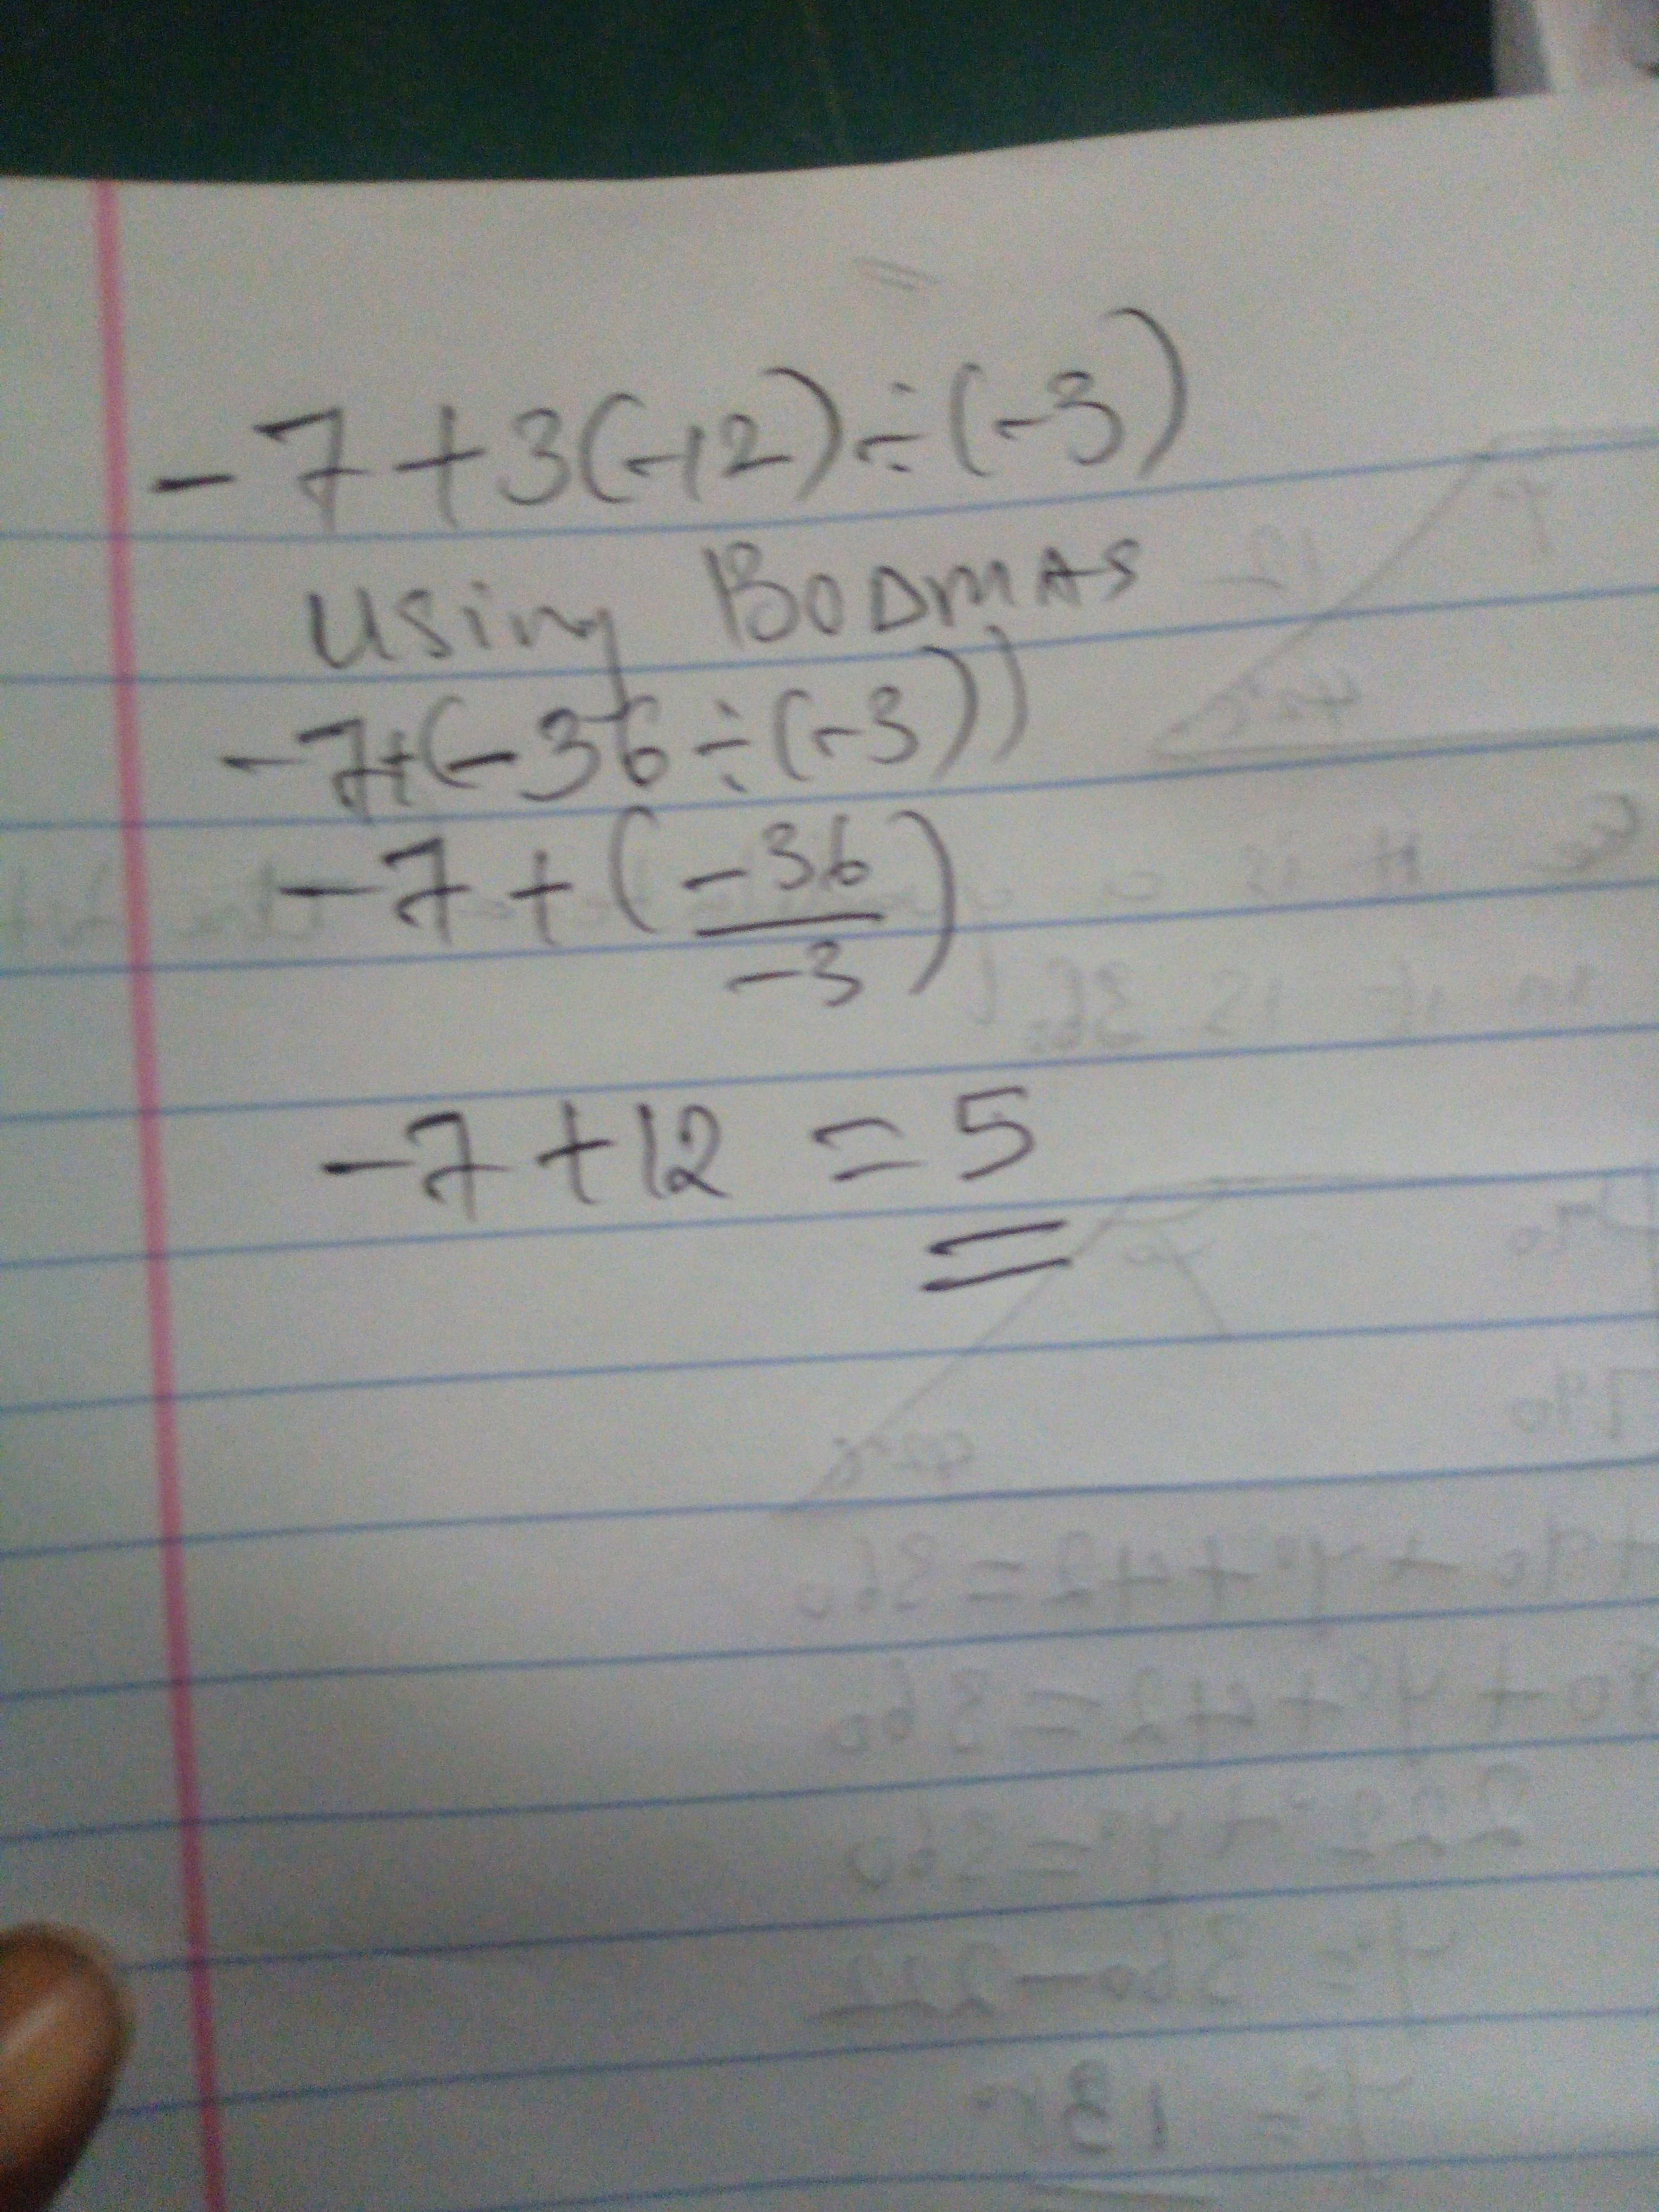 -7+3(-12)÷(-3)
Using BODMAS
-7+(-36÷(-3))
-7+(-36/-3)
-7+12 = 5